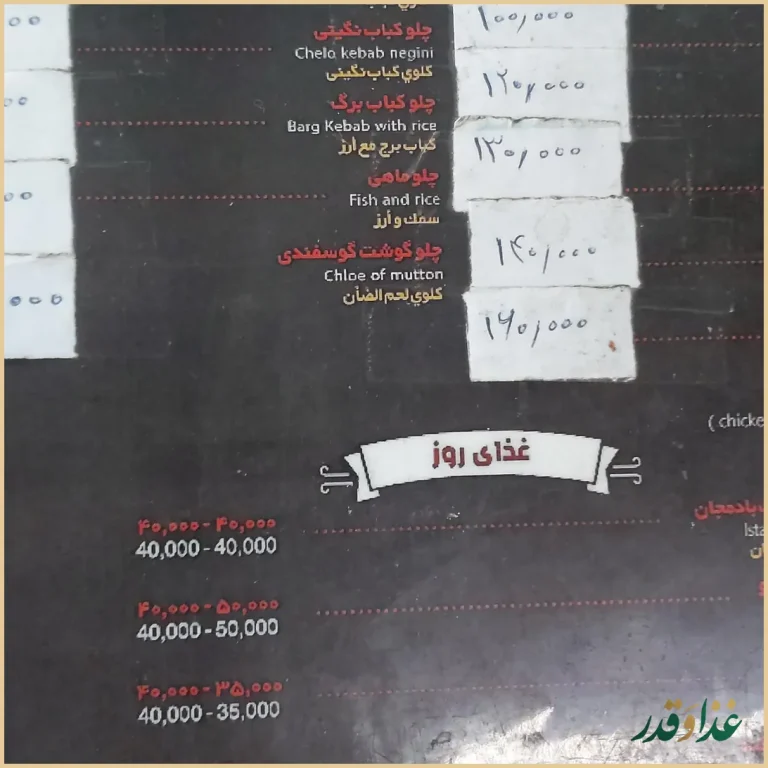 ۱۰۰,۰۰۰
چلو کباب نگینی
Chelo kebab negini
كلوي كباب نگینی
۱۲۰,۰۰۰
چلو کباب برگ
Barg Kebab with rice
كباب برج مع أرز
۱۳۰,۰۰۰
چلو ماهی
Fish and rice
سمك و أرز
۱۴۰,۰۰۰
چلو گوشت گوسفندی
Chloe of mutton
كلوي لحم الضأن
۱۶۰,۰۰۰
( chicke
غذای روز
بادمجان
۴۰,۰۰۰ - ۴۰,۰۰۰
40,000 - 40,000
۴۰,۰۰۰ - ۵۰,۰۰۰
40,000 - 50,000
۴۰,۰۰۰ - ۳۵,۰۰۰
40,000 - 35,000
غذا و قدر